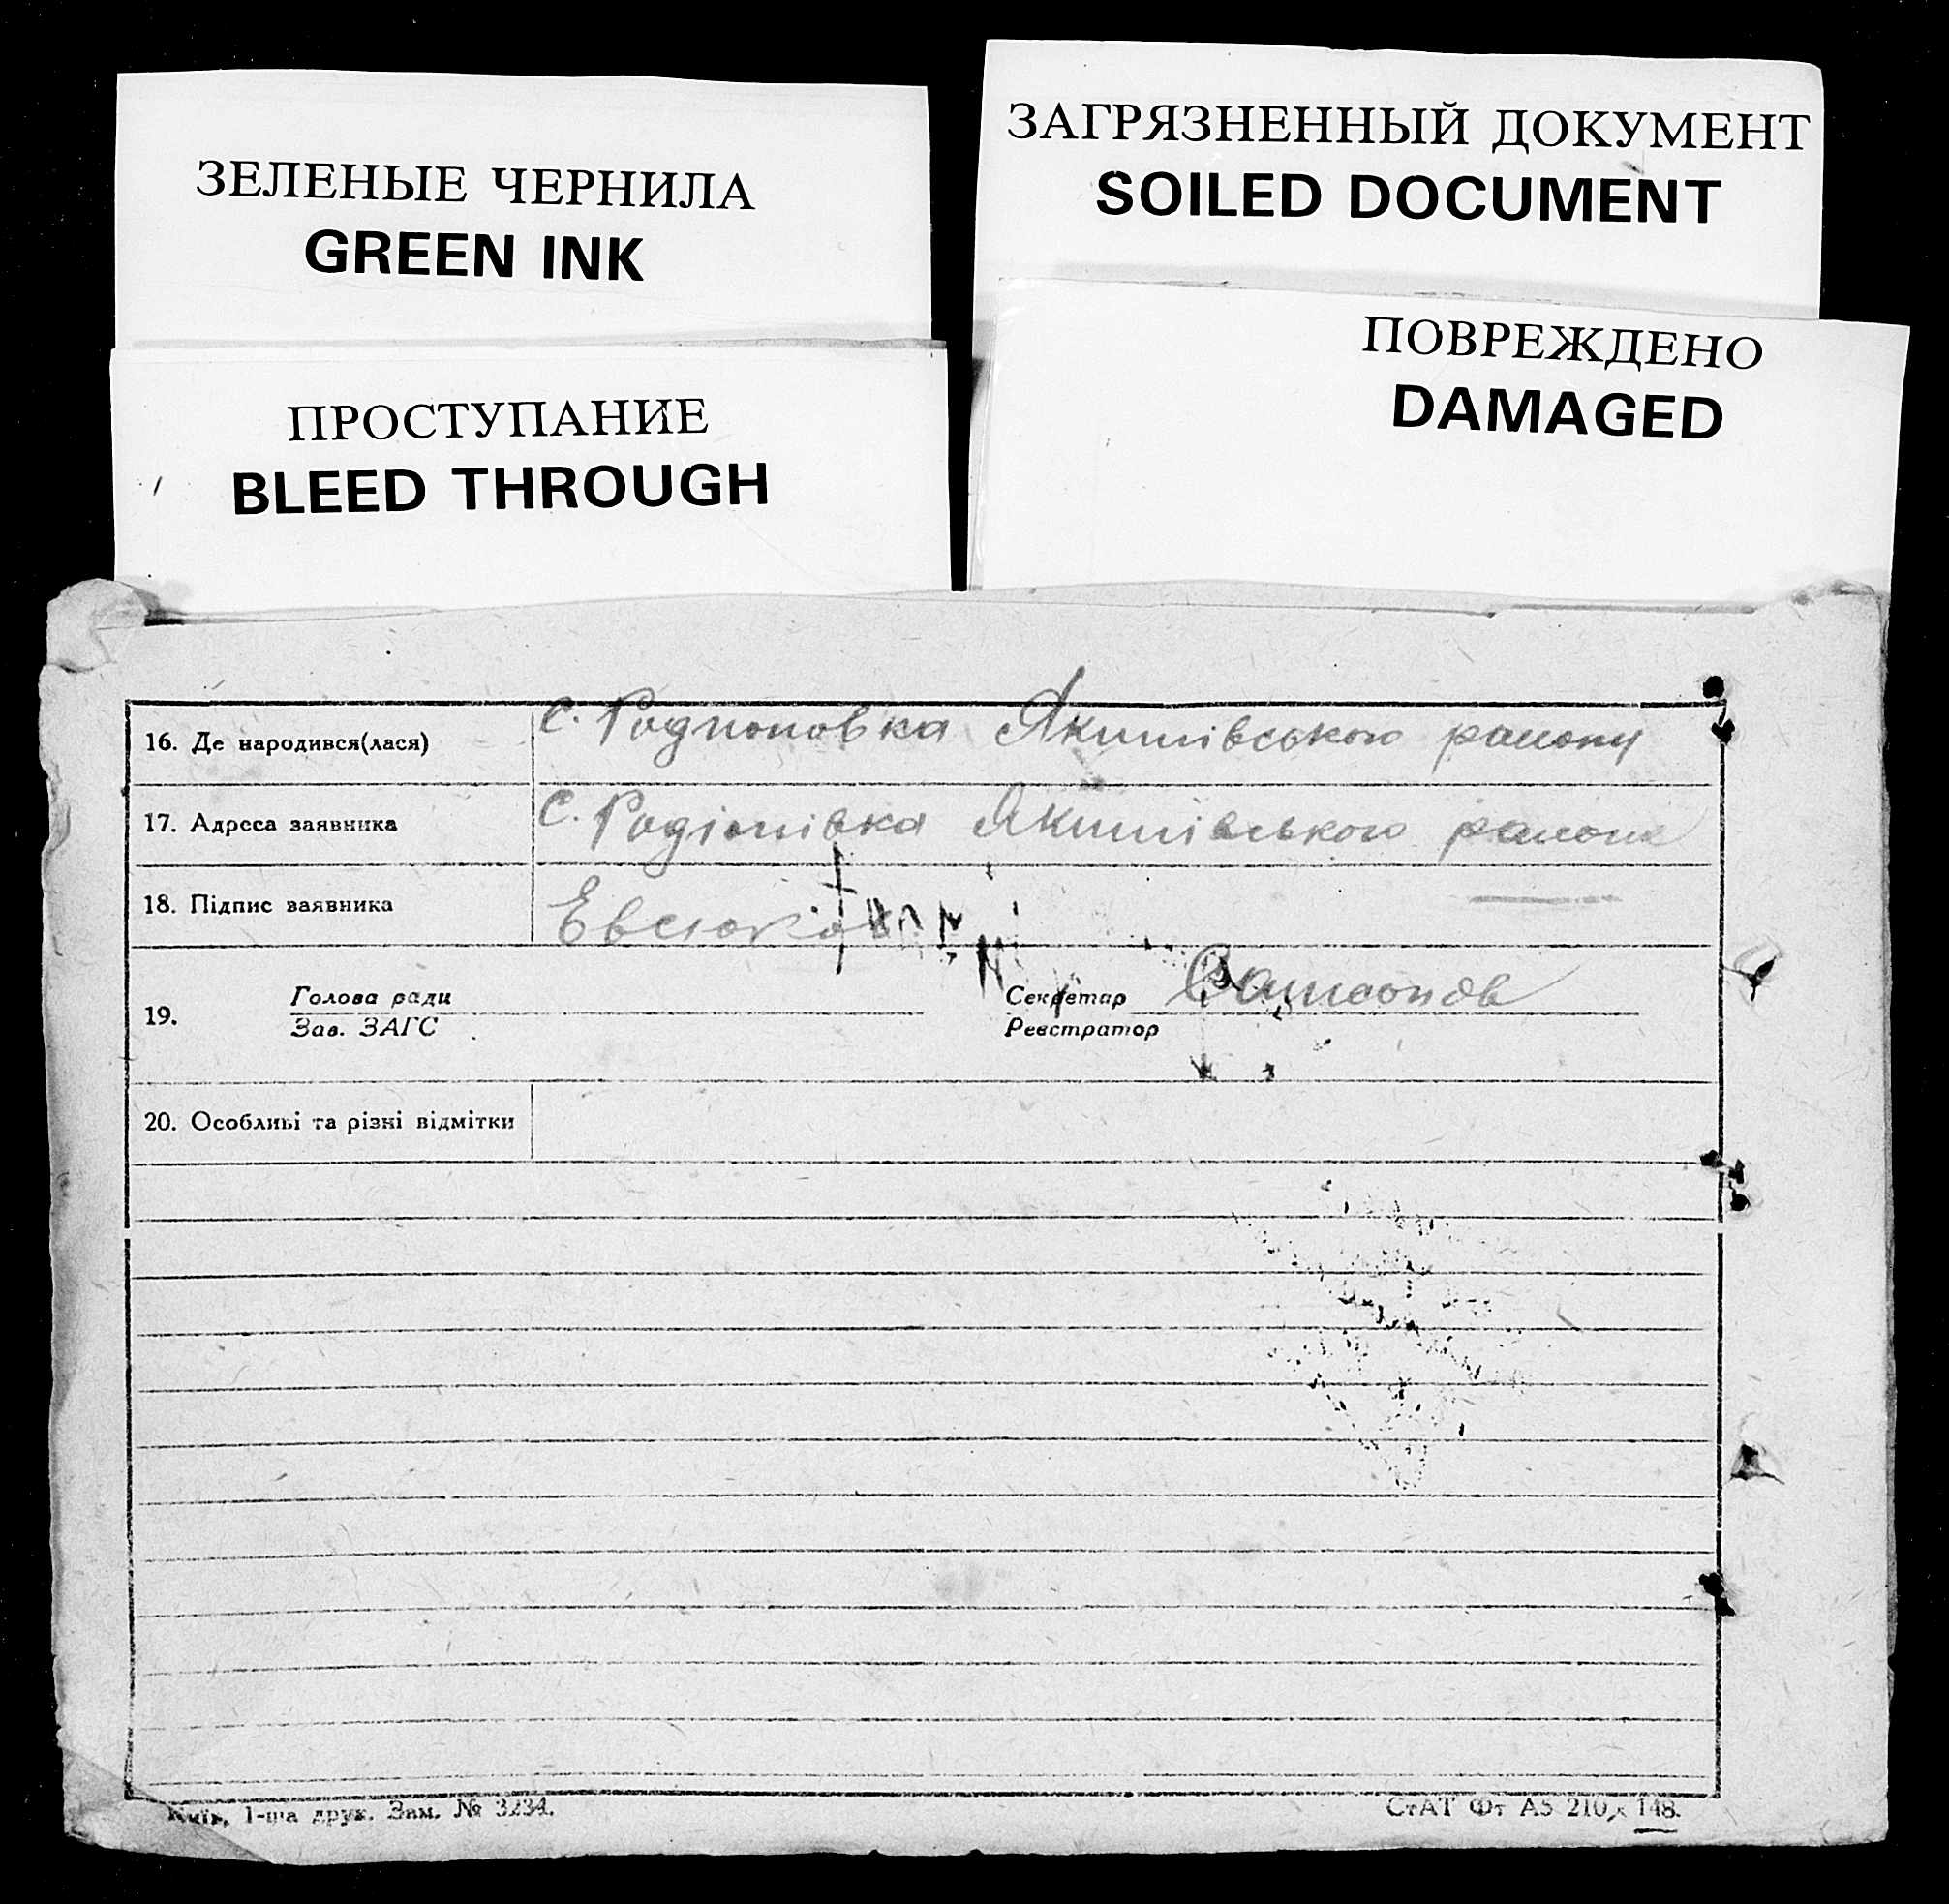 ЗЕЛЕНЫЕ ЧЕРНИЛА
GREEN INK
ПРОСТУПАНИЕ
BLEED THROUGH
ЗАГРЯЗНЕННЫЙ ДОКУМЕНТ
SOILED DOCUMENT
ПОВРЕЖДЕНО
DAMAGED
16. Де народився(лася) с. Родионовка Якимівського району
17. Адреса заявника с. Родіонівка Якимівського району
18. Підпис заявника
19. Голова ради
Зав. ЗАГС
Секретар
Реєстратор
20. Особливі та різні відмітки
Київ, 1-ша друк. Зам. № 3234.
СтАТ Фт А5 210 х 148.